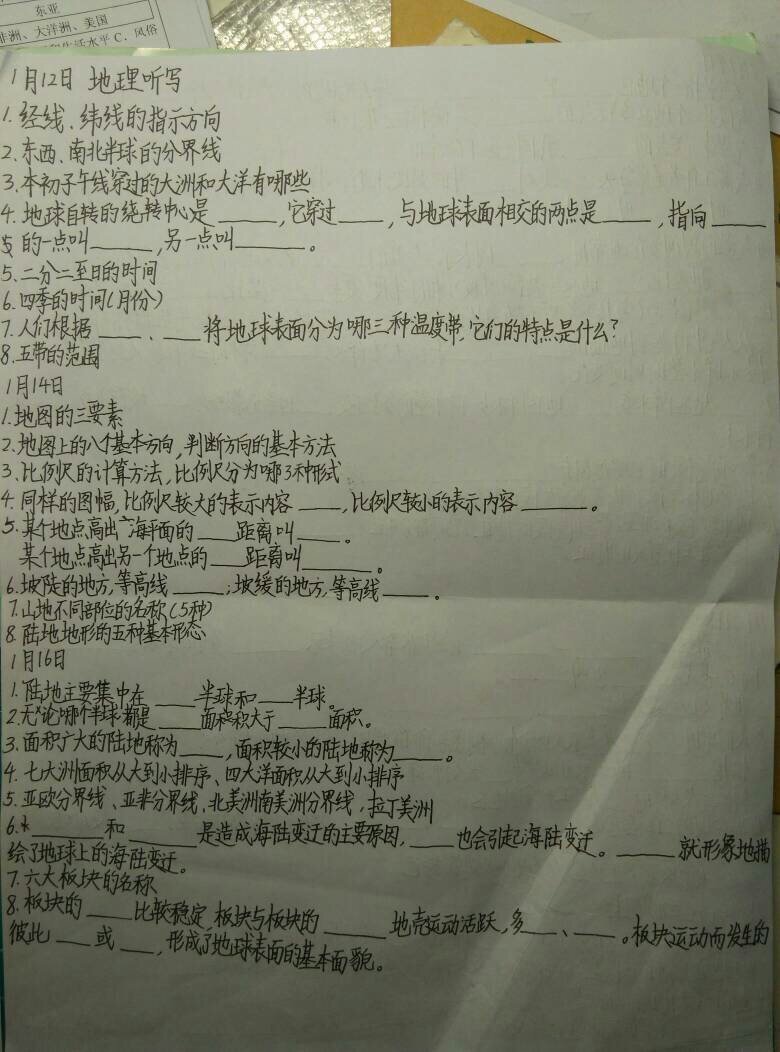 东亚
非洲、大洋洲、美国
生活水平 C、风俗
1月12日 地理听写
1. 经线、纬线的指示方向
2. 东西、南北半球的分界线
3. 本初子午线穿过的大洲和大洋有哪些
4. 地球自转的绕转中心是______,它穿过____,与地球表面相交的两点是_____,指向_____
的一点叫______,另一点叫______。
5. 二分二至日的时间
6. 四季的时间(月份)
7. 人们根据____、____将地球表面分为哪三种温度带,它们的特点是什么?
8. 五带的范围
1月14日
1. 地图的三要素
2. 地图上的八个基本方向,判断方向的基本方法
3. 比例尺的计算方法,比例尺分为哪3种形式
4. 同样的图幅,比例尺较大的表示内容____,比例尺较小的表示内容______。
5. 某个地点高出海平面的____距离叫____。
某个地点高出另一个地点的____距离叫______。
6. 坡陡的地方,等高线_____;坡缓的地方,等高线____。
7. 山地不同部位的名称(5种)
8. 陆地地形的五种基本形态
1月16日
1. 陆地主要集中在____半球和____半球。
2. 无论哪个半球都是____面积大于____面积。
3. 面积广大的陆地称为____,面积较小的陆地称为____。
4. 七大洲面积从大到小排序、四大洋面积从大到小排序
5. 亚欧分界线、亚非分界线、北美洲南美洲分界线,拉丁美洲
6. ______和______是造成海陆变迁的主要原因,____也会引起海陆变迁。_____就形象地描
绘了地球上的海陆变迁。
7. 六大板块的名称
8. 板块的____比较稳定,板块与板块的_____地壳运动活跃,多____、____。板块运动而发生的
彼此___或___,形成了地球表面的基本面貌。